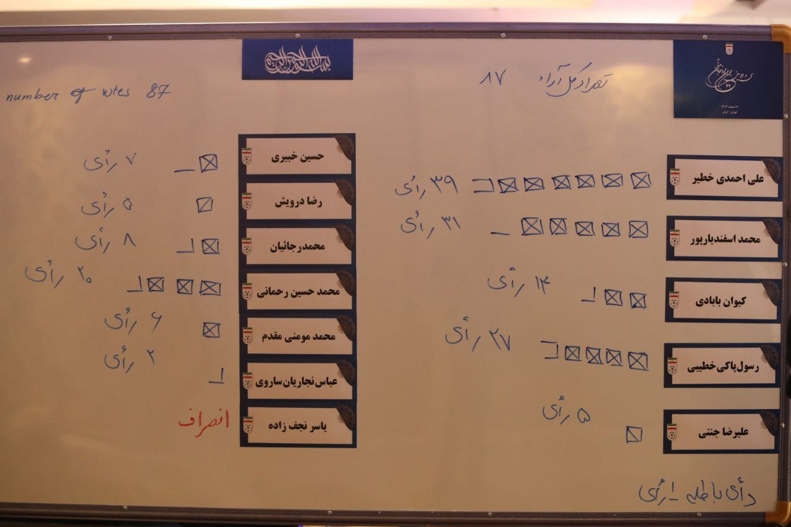 تعداد کل آراء ۸۷
علی احمدی خطیر ۳۹ رأی
محمد اسفندیارپور ۳۱ رأی
کیوان بابادی ۱۴ رأی
رسول پاکی خطیبی ۲۷ رأی
علیرضا جنتی ۵ رأی
رأی باطله ۱ رأی
بسم الله الرحمن الرحیم
number of votes 87
حسین خبیری ۷ رأی
رضا درویش ۵ رأی
محمد رجائیان ۸ رأی
محمد حسین رحمانی ۲۰ رأی
محمد مومنی مقدم ۶ رأی
عباس نجاریان ساروی ۲ رأی
یاسر نجف زاده انصراف